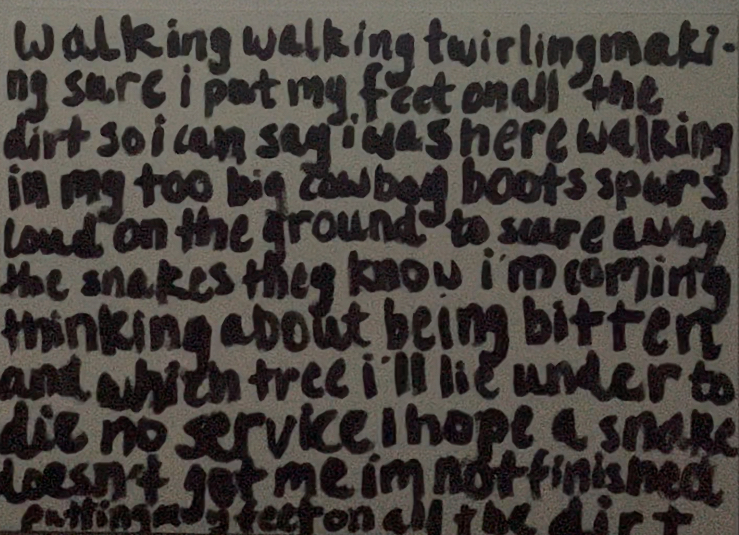 walking walking twirling maki-
ng sure i put my feet on all the
dirt so i can say i was here walking
in my too big cowboy boots spurs
loud on the ground to scare away
the snakes they know i'm coming
thinking about being bitten
and which tree i'll lie under to
die no service I hope a snake
doesn't get me im not finished
putting my feet on all the dirt